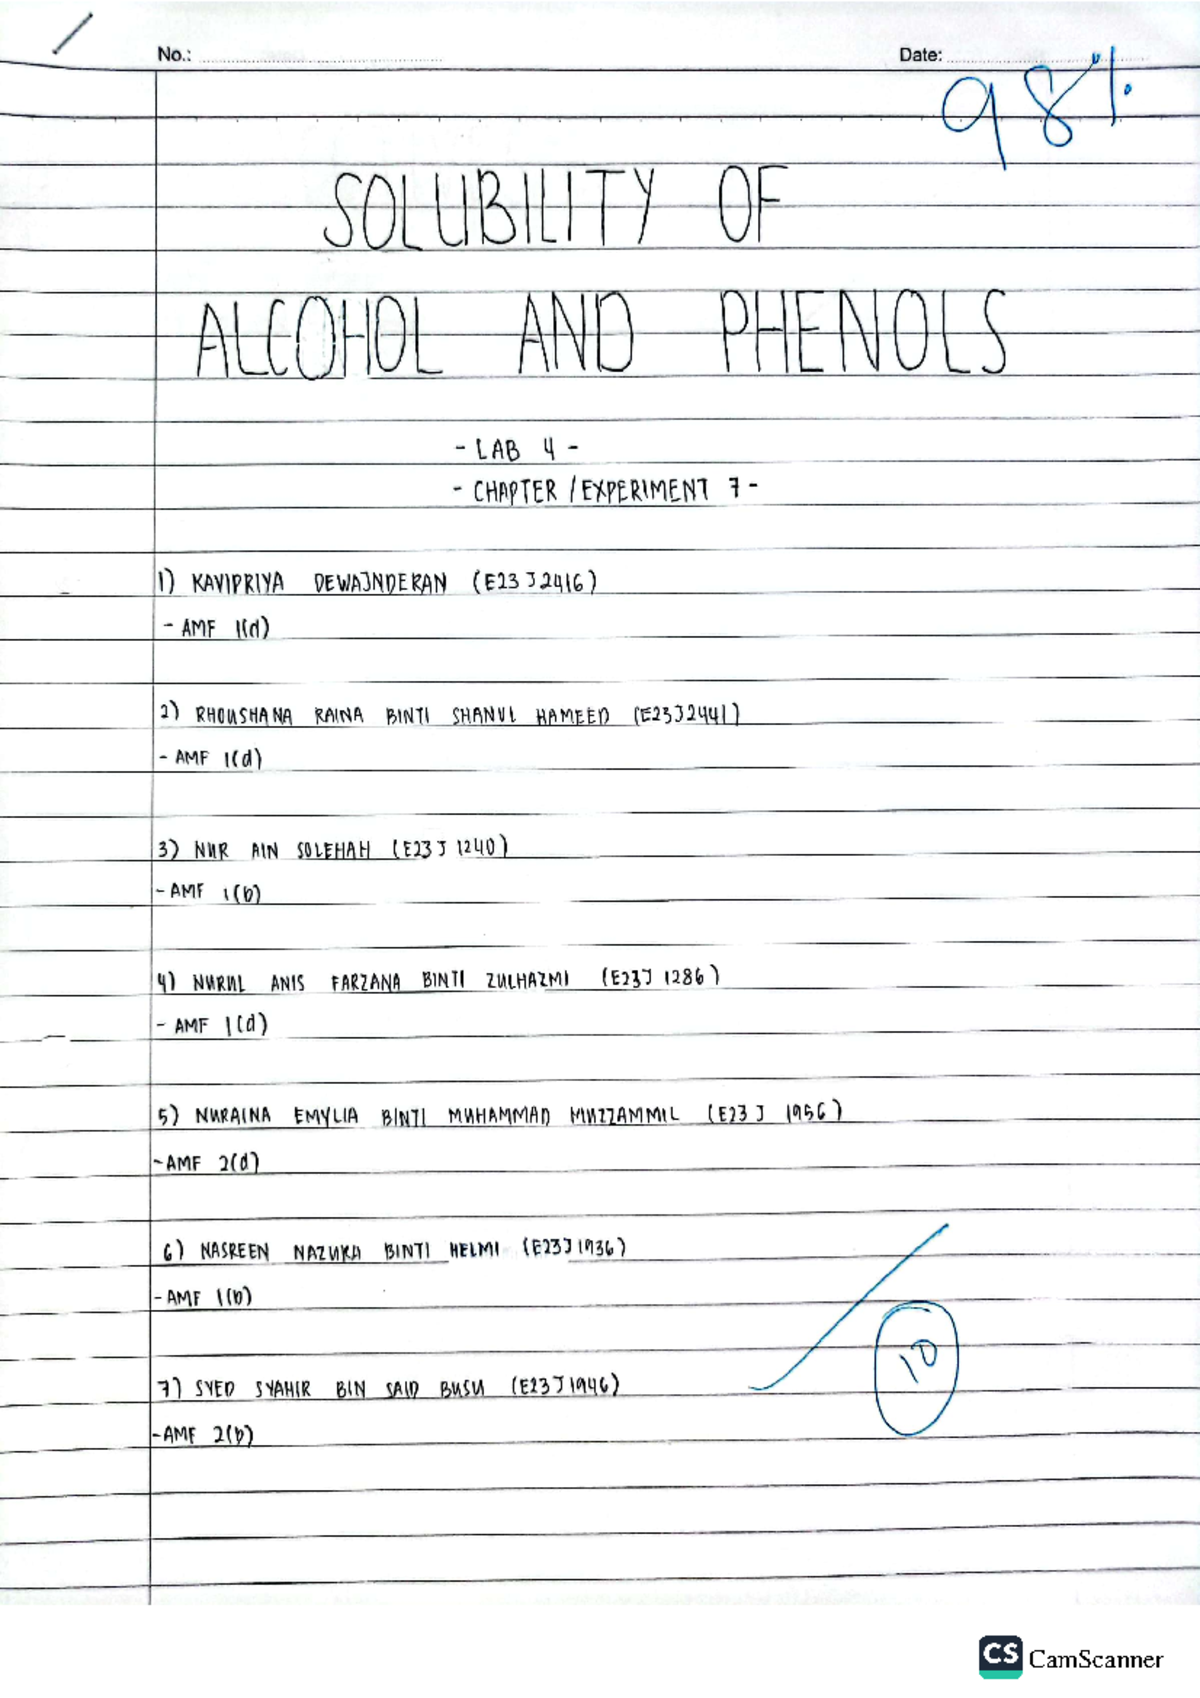 No.:
Date:
98%
SOLUBILITY OF
ALCOHOL AND PHENOLS
- LAB 4 -
- CHAPTER / EXPERIMENT 7 -
1) KAVIPRIYA DEWAJNDERAN (E23J2416)
- AMF 1(d)
2) RHOUSHANA RAINA BINTI SHANUL HAMEED (E23J2441)
- AMF 1(d)
3) NUR AIN SOLEHAH (E23J1240)
- AMF 1(b)
4) NURUL ANIS FARZANA BINTI ZULHAZMI (E23J1286)
- AMF 1(d)
5) NURAINA EMYLIA BINTI MUHAMMAD MUZZAMMIL (E23J1956)
- AMF 2(d)
6) NASREEN NAZURA BINTI HELMI (E23J1936)
- AMF 1(b)
10
7) SYED SYAHIR BIN SAID BUSU (E23J1946)
- AMF 2(b)
CS CamScanner